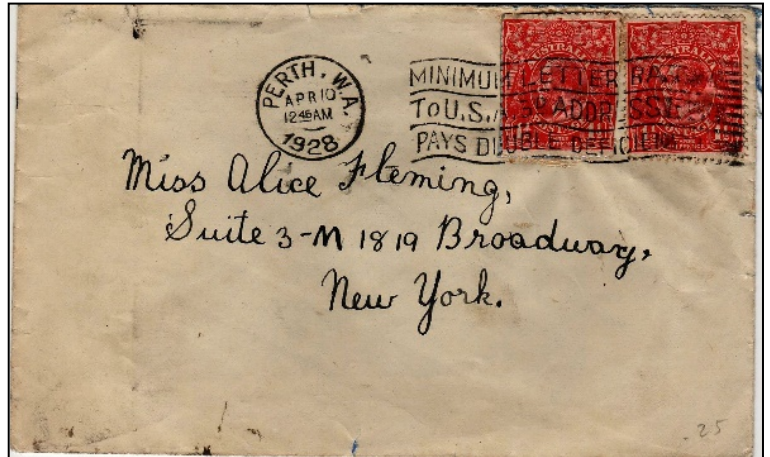 PERTH. W.A.
APR 10
12 45 AM
1928
MINIMUM LETTER RATE
To U.S.A. 3D ADDRESSEE
PAYS DOUBLE DEFICIENCY
AUSTRALIA AUSTRALIA
Miss Alice Fleming,
Suite 3-M 1819 Broadway,
New York.
25